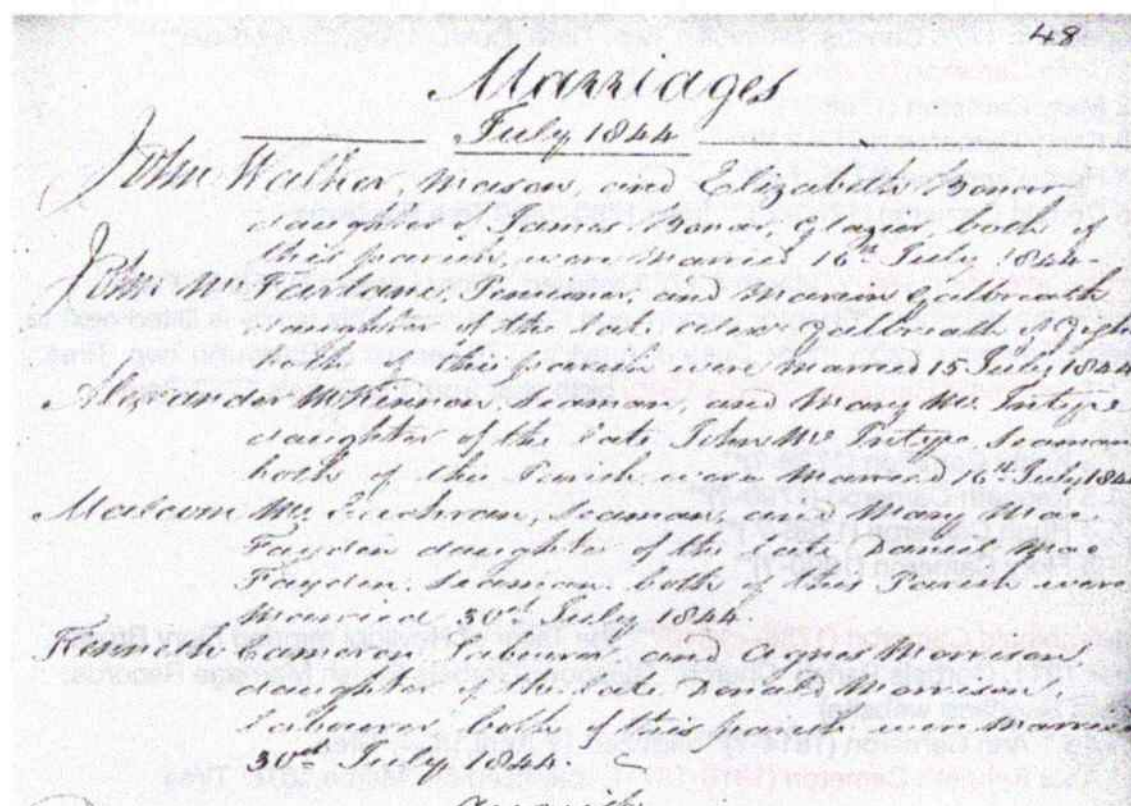 48
Marriages
July 1844
John Walker, Mason, and Elizabeth Bonar
daughter of James Bonar, Glazier, both of
this parish, were Married 16th July 1844.
John Mc Farlane, and Marion Galbreath
daughter of the late Galbreath of Gigha
both of this parish were married 15 July 1844
Alexander McKinnon, Seaman, and Mary Mc Intype
daughter of the late John Mc Intype, Seaman
both of this Parish were Married 16th July 1844
Malcom Mc Eachran, Seaman, and Mary Mac
Fayden daughter of the late Daniel Mac
Fayden, Seaman both of this Parish were
Married 30th July 1844
Kenneth Cameron, Labourer, and Agnes Morrison
daughter of the late Donald Morrison,
Labourer, both of this parish were Married
30th July 1844.